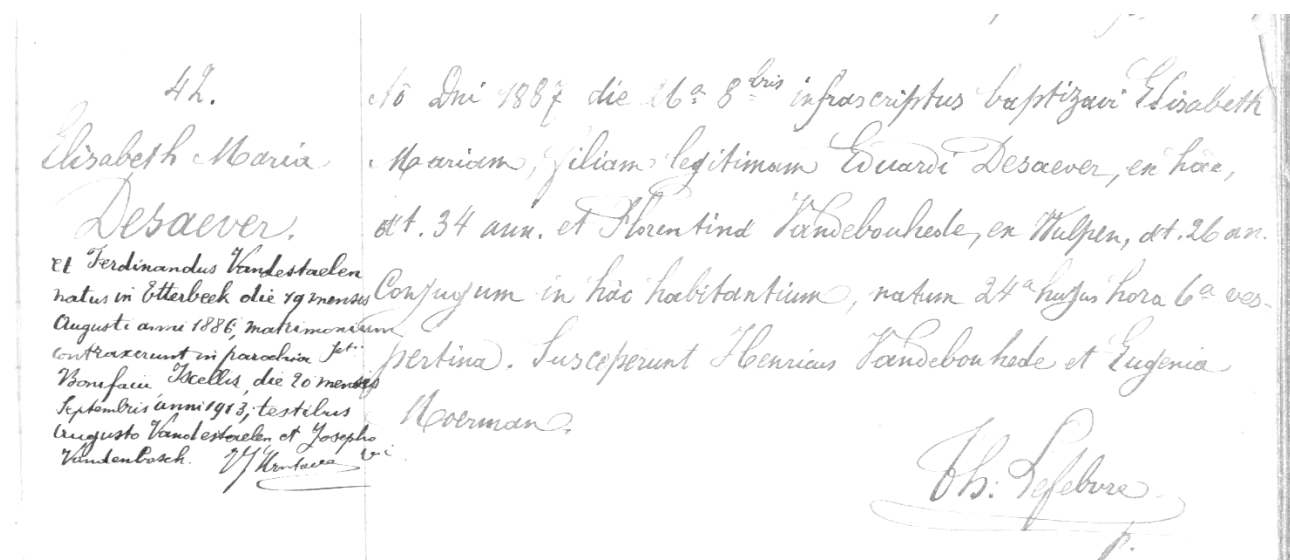 42.
Elisabeth Maria
Desaever.
et Ferdinandus Vandestaelen
natus in Etterbeek die 19 mensis
Augusti anni 1886, matrimonium
contraxerunt in parochia Sti
Bonifacii Ixellis, die 20 mensis
Septembris anni 1913, testibus
Augusto Vandestaelen et Josepho
Vandenbosch.
Aō Dni 1887 die 26a 8bris infrascriptus baptizavi Elisabeth
Mariam, filiam legitimam Eduardi Desaever, ex hâc,
æt. 34 ann. et Florentinæ Vandebouhede, ex Wulpen, æt. 26 an.
Conjugum in hâc habitantium, natam 24a hujus hora 6a ves-
pertina. Susceperunt Henricus Vandebouhede et Eugenia
Moerman.
Th: Lefebvre
p.